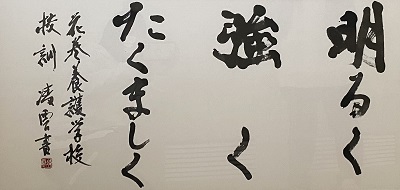 明るく
強く
たくましく
花巻養護学校
校訓 凌雲書